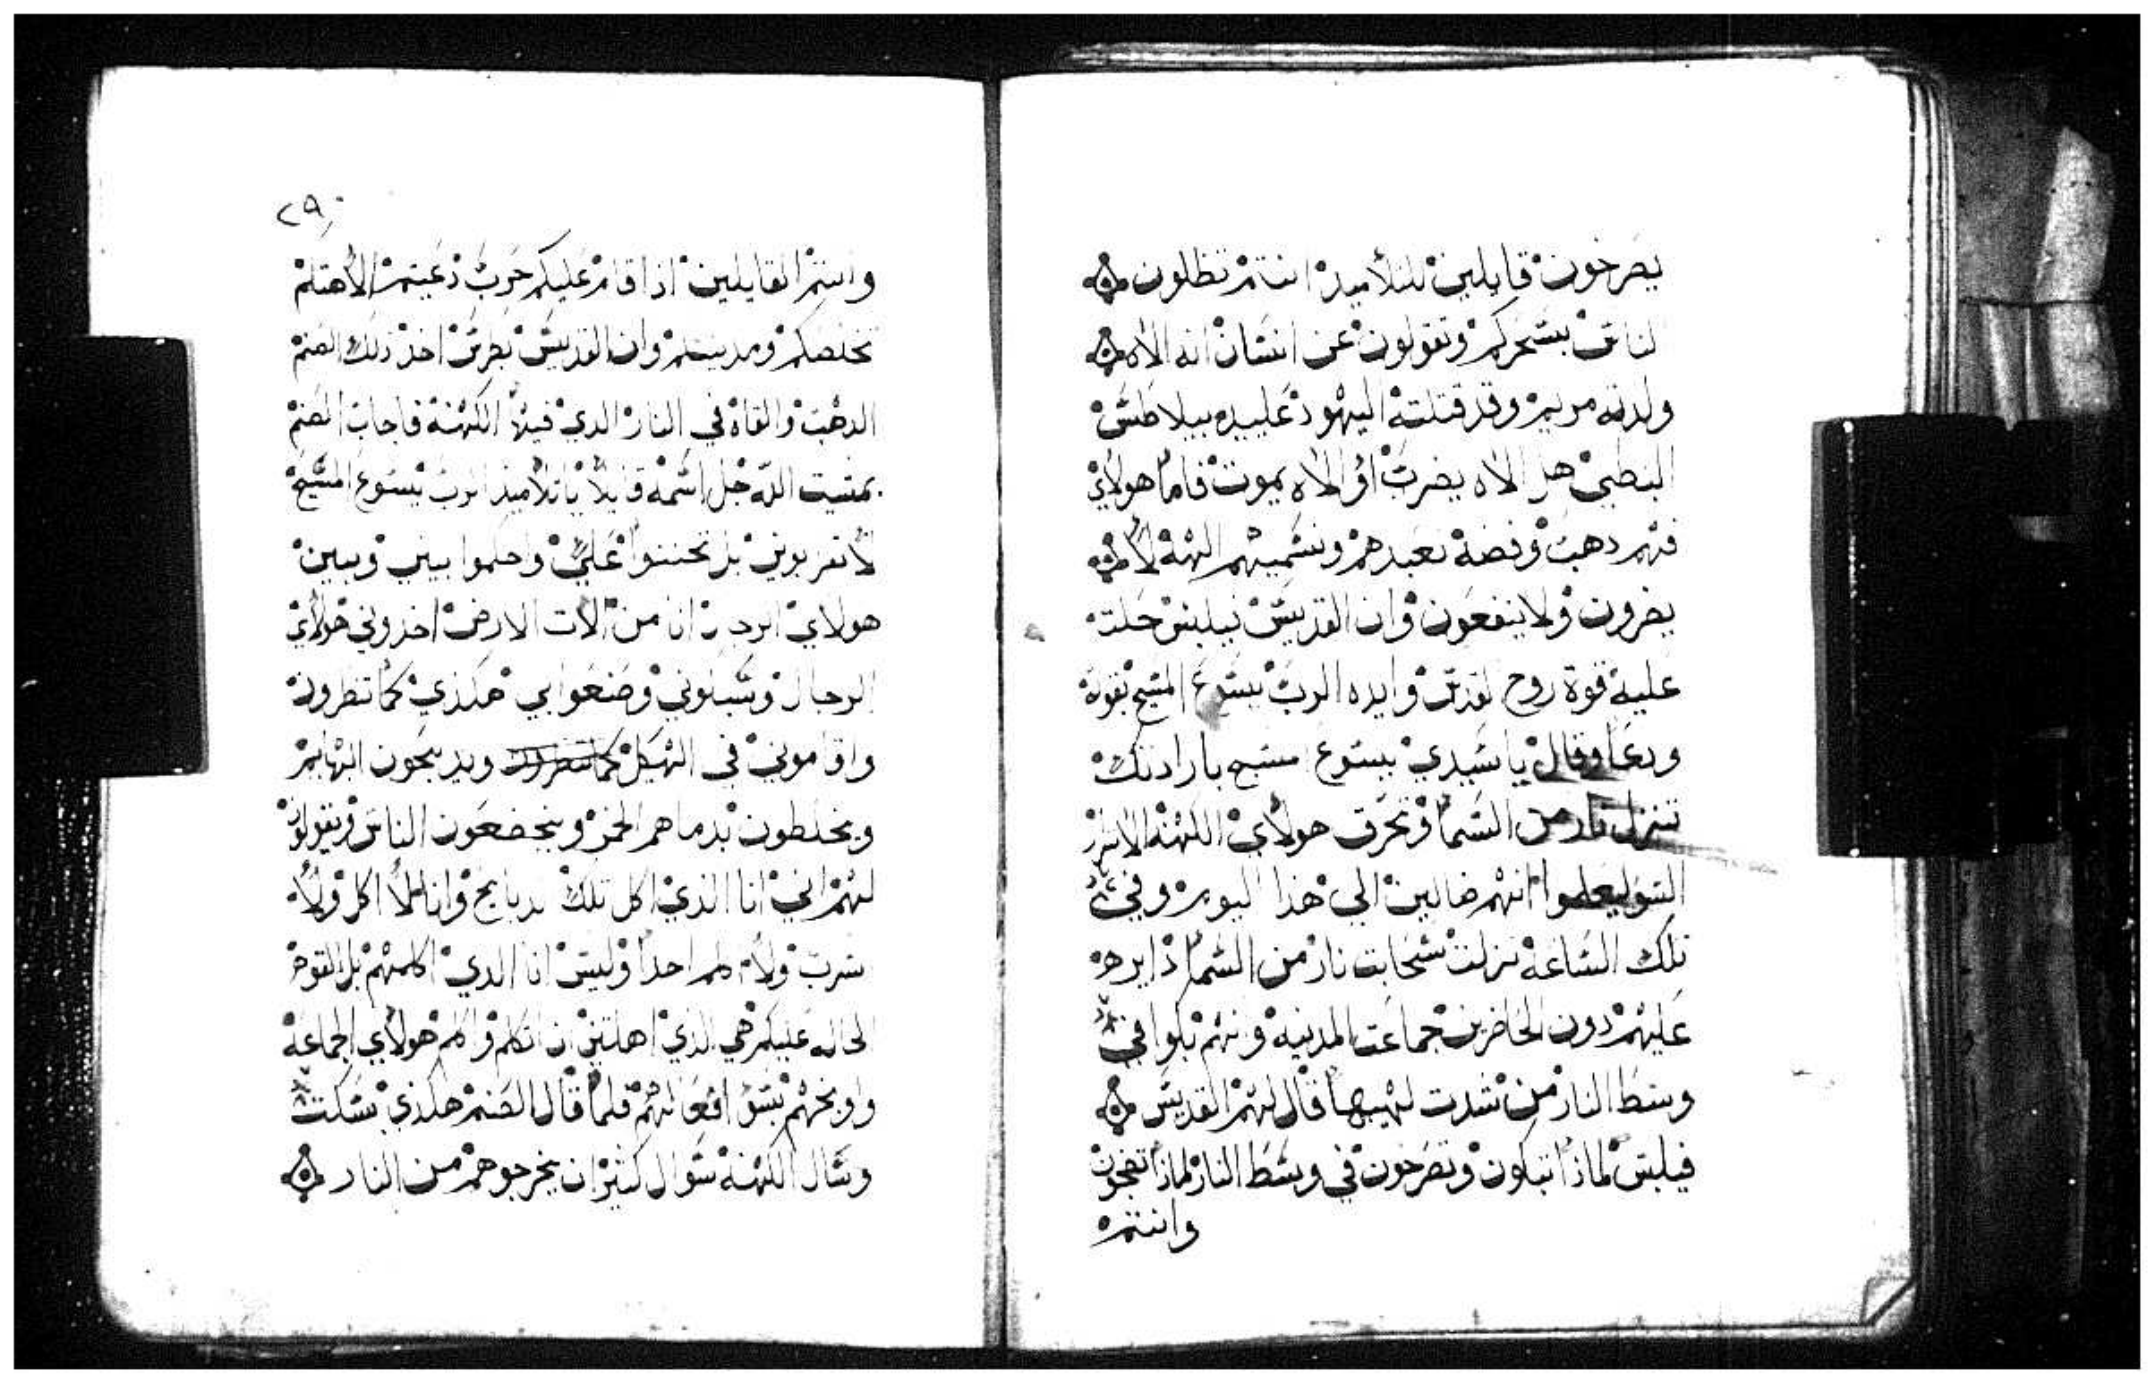 يصرخون قايلين للتلاميذ انتم تظلون
لناس بسحركم وتقولون عن انسان انه الاه
ولدته مريم وقد قتلته اليهود علي يد بيلاطس
البنطي هل الاه يضرب او الاه يموت فاما هولاي
فهم دهب وفضة نعبدهم ونسميهم الهة لا
يضرون ولا ينفعون وان القديس فيلبس حلت
علية قوة روح القدس وايده الرب يسوع المسيح بقوته
ودعا وقال يا سيدي يسوع المسيح بارادتك
تنزل نار من السما وتحرق هولاي الكهنة الاشرار
السو ليعلموا انهم ضالين الي هذا اليوم وفي
تلك الساعة نزلت سحابت نار من السما
عليهم دون الحاضرين جماعت المدينة وانهم بكوا في
وسط النار من شدت لهيبها قال لهم القديس
فيلبس لماذا تبكون وتصرخون في وسط النار لماذا تضجون
وانتم
٢٩
وانتم القايلين اذا قام عليكم حرب دعيتم الاهتكم
تخلصكم ومدينتكم وان القديس بطرس اخذ ذلك الصنم
الدهب والقاه في النار الدي فيها الكهنة فاجاب الصنم
بمشيت الله جل اسمه قايلا يا تلاميذ الرب يسوع المسيح
لا تعذبوني بل تحننوا علي واحكموا بيني وبين
هولاي الرجال انا من الات الارض اخذوني هولاي
الرجال وسبكوني وصنعوا بي هكذي كما تنظرون
واقاموني في الهيكل كما تنظرون ويدبحون البهايم
ويخلطون بدماهم الخمر ويخضعون الناس ويقولون
لهم اني انا الذي اكل تلك الدبايح وانا لا اكل ولا
شرب ولا اكلم احدا وليس انا الدي اكلمهم بل القوة
الحاله عليكم هي الذي اهلتني ان اتكلم واكلم هولاي الجماعة
واوبخهم بسو افعالهم فلما قال الصنم هكذي سكت
وسال الكهنة سوال كثير ان يخرجوهم من النار